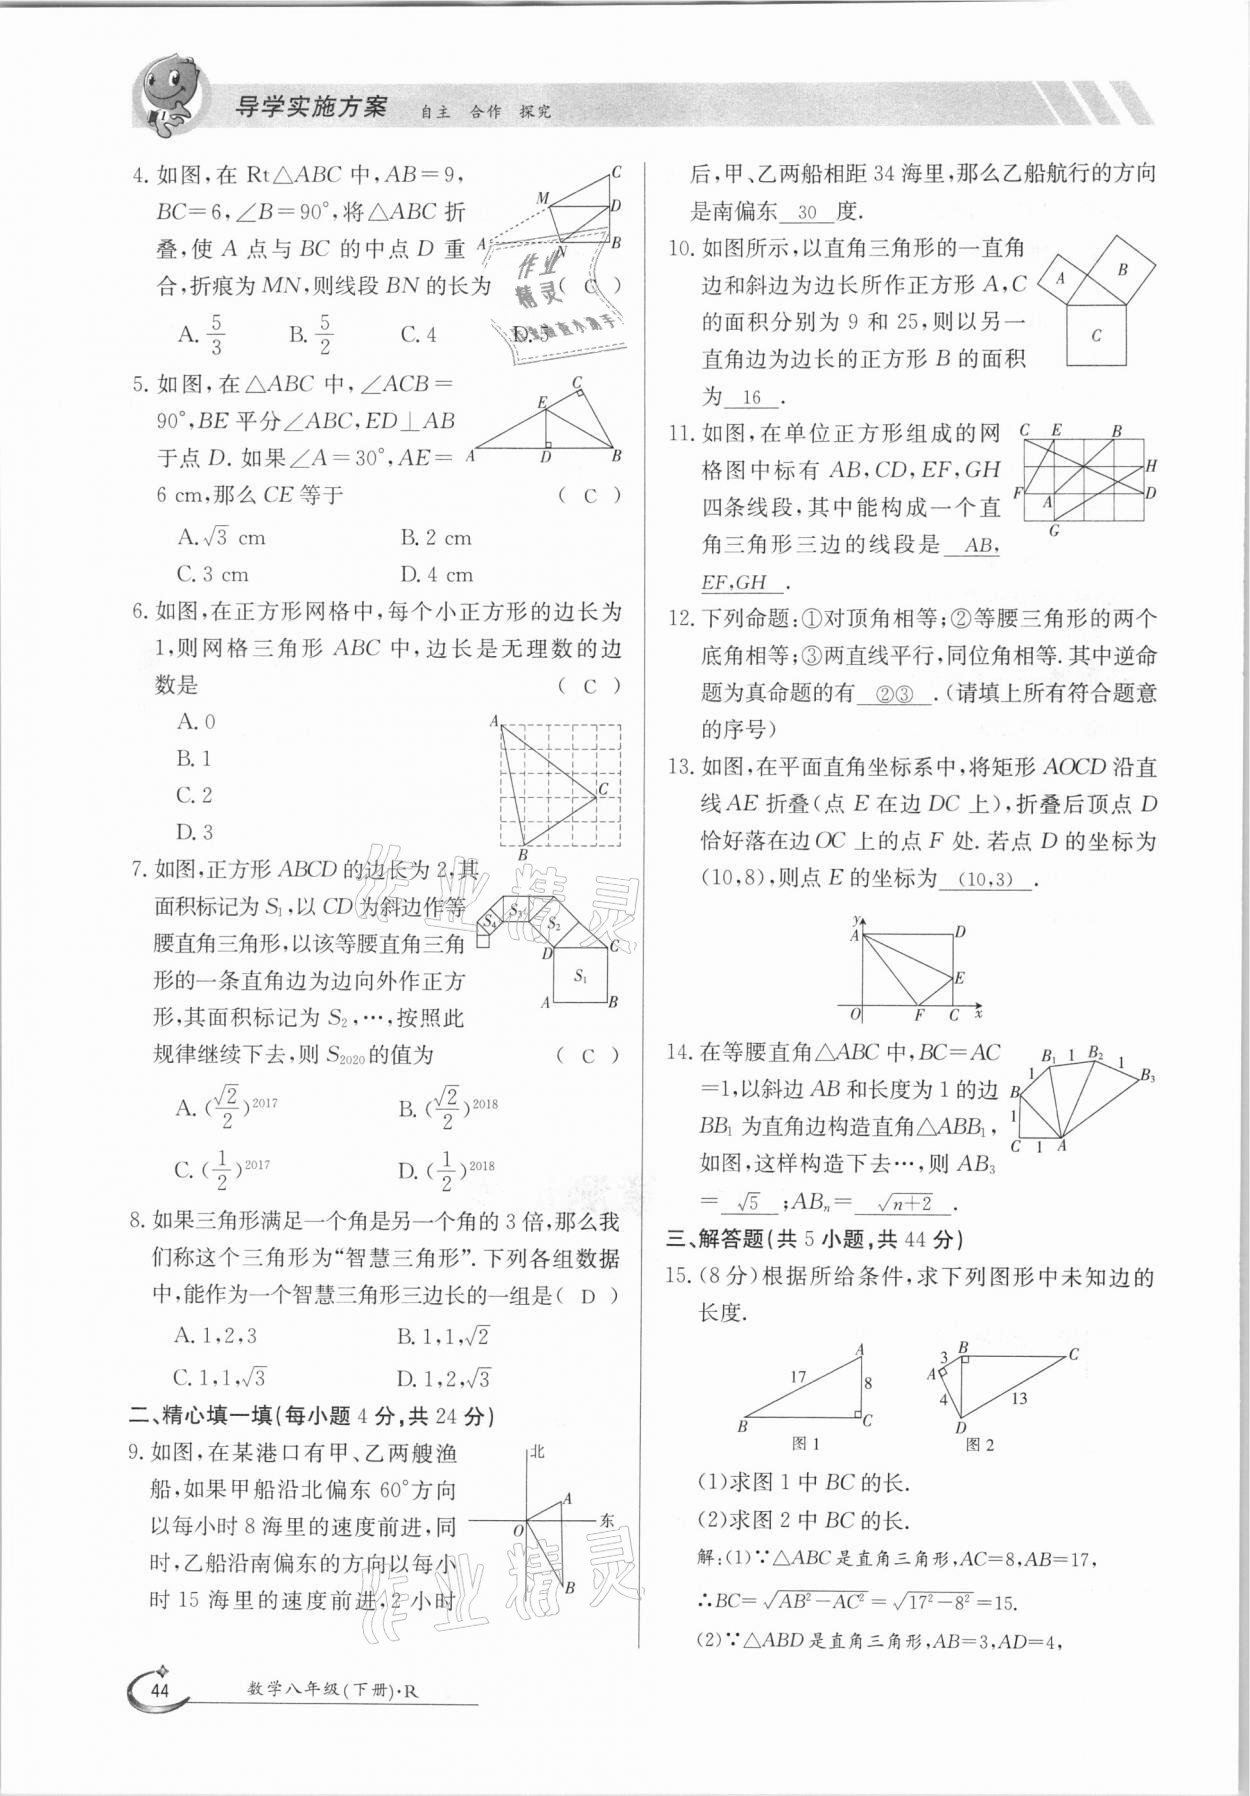 导学实施方案 自主 合作 探究
4. 如图,在 Rt△ABC 中,AB=9,
BC=6,∠B=90°,将△ABC 折
叠,使 A 点与 BC 的中点 D 重
合,折痕为MN,则线段 BN 的长为 ( C )
A. 5/3 B. 5/2 C. 4 D. 5
C
M
D
A
N
B
作业
精灵
5. 如图,在△ABC 中,∠ACB=
90°,BE 平分∠ABC,ED⊥AB
于点 D. 如果∠A=30°,AE=
6 cm,那么 CE 等于 ( C )
A. √3 cm B. 2 cm
C. 3 cm D. 4 cm
C
E
A
D
B
6. 如图,在正方形网格中,每个小正方形的边长为
1,则网格三角形 ABC 中,边长是无理数的边
数是 ( C )
A. 0
B. 1
C. 2
D. 3
A
C
B
7. 如图,正方形 ABCD 的边长为 2,其
面积标记为 S₁,以 CD 为斜边作等
腰直角三角形,以该等腰直角三角
形的一条直角边为边向外作正方
形,其面积标记为 S₂,…,按照此
规律继续下去,则 S₂₀₂₀的值为 ( C )
A. (√2/2)²⁰¹⁷ B. (√2/2)²⁰¹⁸
C. (1/2)²⁰¹⁷ D. (1/2)²⁰¹⁸
S₄
S₃
S₂
D
C
S₁
A
B
8. 如果三角形满足一个角是另一个角的 3 倍,那么我
们称这个三角形为“智慧三角形”. 下列各组数据
中,能作为一个智慧三角形三边长的一组是( D )
A. 1,2,3 B. 1,1,√2
C. 1,1,√3 D. 1,2,√3
二、精心填一填(每小题 4 分,共 24 分)
9. 如图,在某港口有甲、乙两艘渔
船,如果甲船沿北偏东 60°方向
以每小时 8 海里的速度前进,同
时,乙船沿南偏东的方向以每小
时 15 海里的速度前进,2 小时
北
A
O
东
B
后,甲、乙两船相距 34 海里,那么乙船航行的方向
是南偏东 30 度.
10. 如图所示,以直角三角形的一直角
边和斜边为边长所作正方形 A,C
的面积分别为 9 和 25,则以另一
直角边为边长的正方形 B 的面积
为 16 .
A
B
C
11. 如图,在单位正方形组成的网
格图中标有 AB,CD,EF,GH
四条线段,其中能构成一个直
角三角形三边的线段是 AB,
EF,GH .
C E B
H
F A D
G
12. 下列命题:①对顶角相等;②等腰三角形的两个
底角相等;③两直线平行,同位角相等. 其中逆命
题为真命题的有 ②③ .(请填上所有符合题意
的序号)
13. 如图,在平面直角坐标系中,将矩形 AOCD 沿直
线 AE 折叠(点 E 在边 DC 上),折叠后顶点 D
恰好落在边 OC 上的点 F 处. 若点 D 的坐标为
(10,8),则点 E 的坐标为 (10,3) .
y
A D
E
O F C x
14. 在等腰直角△ABC 中,BC=AC
=1,以斜边 AB 和长度为 1 的边
BB₁ 为直角边构造直角△ABB₁,
如图,这样构造下去…,则 AB₃
= √5 ;ABₙ= √n+2 .
B₁ 1 B₂
1 1
B B₃
1
C 1 A
三、解答题(共 5 小题,共 44 分)
15. (8 分)根据所给条件,求下列图形中未知边的
长度.
A
17
8
B C
图 1
3 B C
A
4 13
D
图 2
(1)求图 1 中 BC 的长.
(2)求图 2 中 BC 的长.
解:(1)∵△ABC 是直角三角形,AC=8,AB=17,
∴BC=√AB²−AC²=√17²−8²=15.
(2)∵△ABD 是直角三角形,AB=3,AD=4,
作业精灵
作业精灵
44 数学八年级(下册)·R